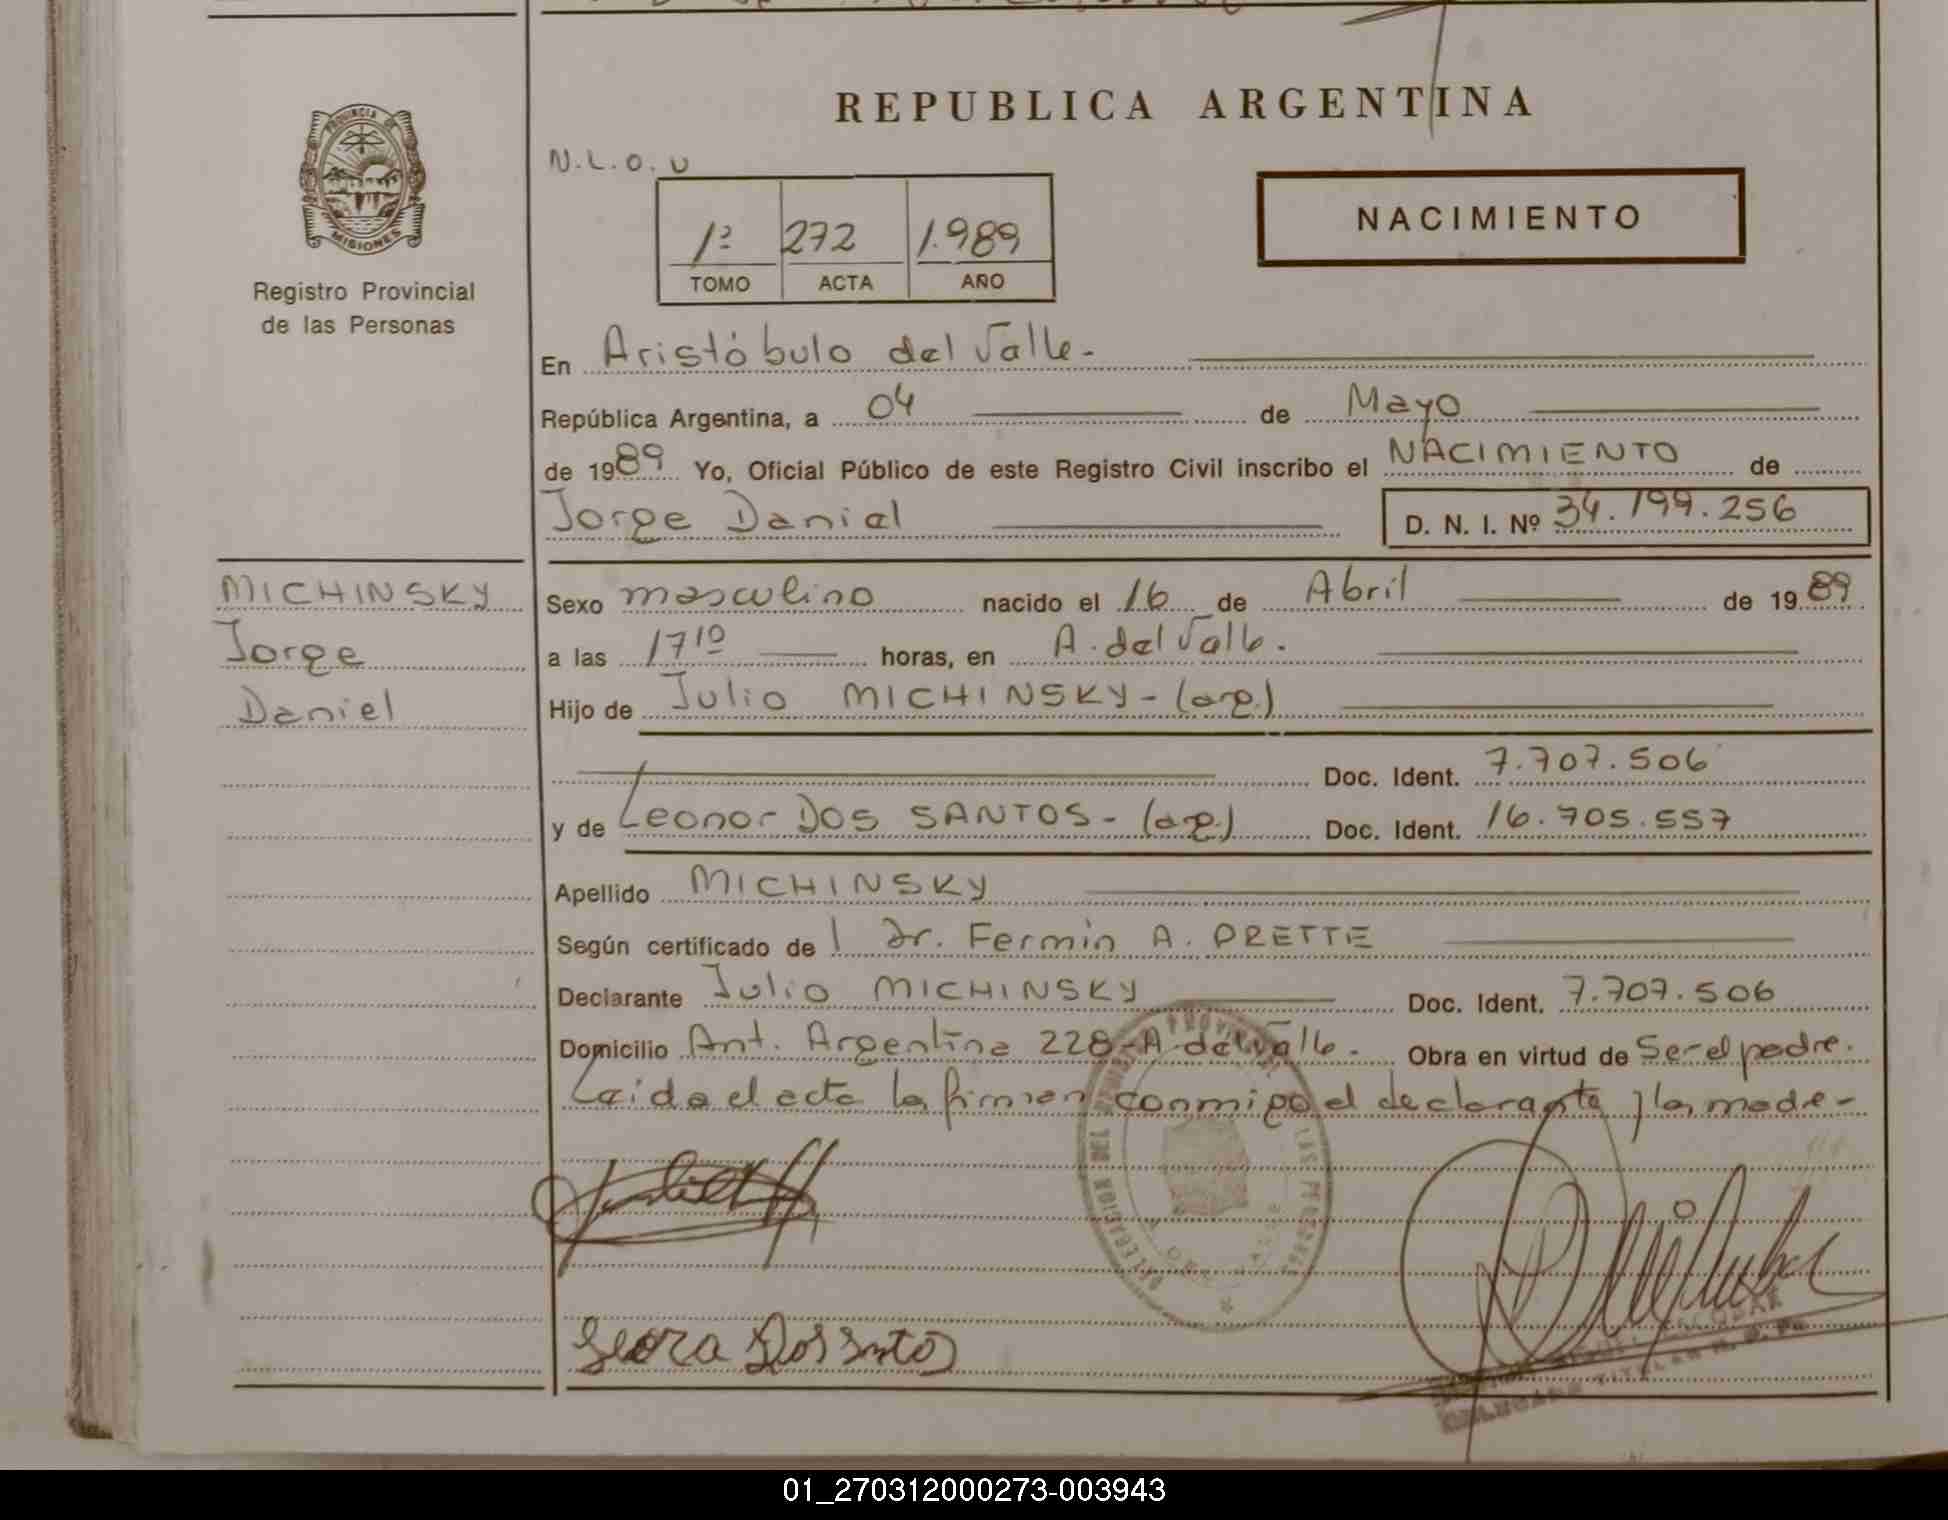 REPUBLICA ARGENTINA
PROVINCIA DE MISIONES
Registro Provincial
de las Personas
N.L.O.U
NACIMIENTO
1º 272 1.989
TOMO ACTA AÑO
En Aristóbulo del Valle.-
República Argentina, a 04 de Mayo
de 1989 Yo, Oficial Público de este Registro Civil inscribo el NACIMIENTO de
Jorge Daniel D. N. I. Nº 34.199.256
MICHINSKY
Jorge
Daniel
Sexo masculino nacido el 16 de Abril de 1989
a las 17 10 horas, en A. del Valle.
Hijo de Julio MICHINSKY- (arg.)
Doc. Ident. 7.707.506
y de Leonor DOS SANTOS- (arg.) Doc. Ident. 16.705.557
Apellido MICHINSKY
Según certificado de l Dr. Fermín A. PRETTE
Declarante Julio MICHINSKY Doc. Ident. 7.707.506
Domicilio Ant. Argentina 228-A. del Valle. Obra en virtud de Ser el padre.
Leída el acta la firman conmigo el declarante y la madre-
DELEGACION DEL REGISTRO PROVINCIAL DE LAS PERSONAS
Dos Santos
ESCOBAR
TITULAR
01_270312000273-003943